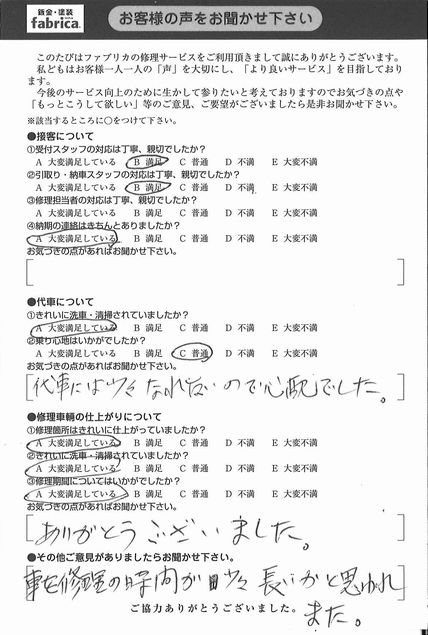 鈑金・塗装
fabrica.
お客様の声をお聞かせ下さい
このたびはファブリカの修理サービスをご利用頂きまして誠にありがとうございます。
私どもはお客様一人一人の「声」を大切にし、「より良いサービス」を目指しており
ます。
今後のサービス向上のために生かして参りたいと考えておりますのでお気づきの点や
「もっとこうして欲しい」等のご意見、ご要望がございましたら是非お聞かせ下さい。
※該当するところに○をつけて下さい。
●接客について
①受付スタッフの対応は丁寧、親切でしたか?
A 大変満足している B 満足 C 普通 D 不満 E 大変不満
②引取り・納車スタッフの対応は丁寧、親切でしたか?
A 大変満足している B 満足 C 普通 D 不満 E 大変不満
③修理担当者の対応は丁寧、親切でしたか?
A 大変満足している B 満足 C 普通 D 不満 E 大変不満
④納期の連絡はきちんとありましたか?
A 大変満足している B 満足 C 普通 D 不満 E 大変不満
お気づきの点があればお聞かせ下さい。
●代車について
①きれいに洗車・清掃されていましたか?
A 大変満足している B 満足 C 普通 D 不満 E 大変不満
②乗り心地はいかがでしたか?
A 大変満足している B 満足 C 普通 D 不満 E 大変不満
お気づきの点があればお聞かせ下さい。
代車には少々なれないので心配でした。
●修理車輌の仕上がりについて
①修理箇所はきれいに仕上がっていましたか?
A 大変満足している B 満足 C 普通 D 不満 E 大変不満
②きれいに洗車・清掃されていましたか?
A 大変満足している B 満足 C 普通 D 不満 E 大変不満
③修理期間についてはいかがでしたか?
A 大変満足している B 満足 C 普通 D 不満 E 大変不満
お気づきの点があればお聞かせ下さい。
ありがとうございました。
●その他ご意見がありましたらお聞かせ下さい。
車を修理の時間が少々長いかと思われ
ました。
ご協力ありがとうございました。